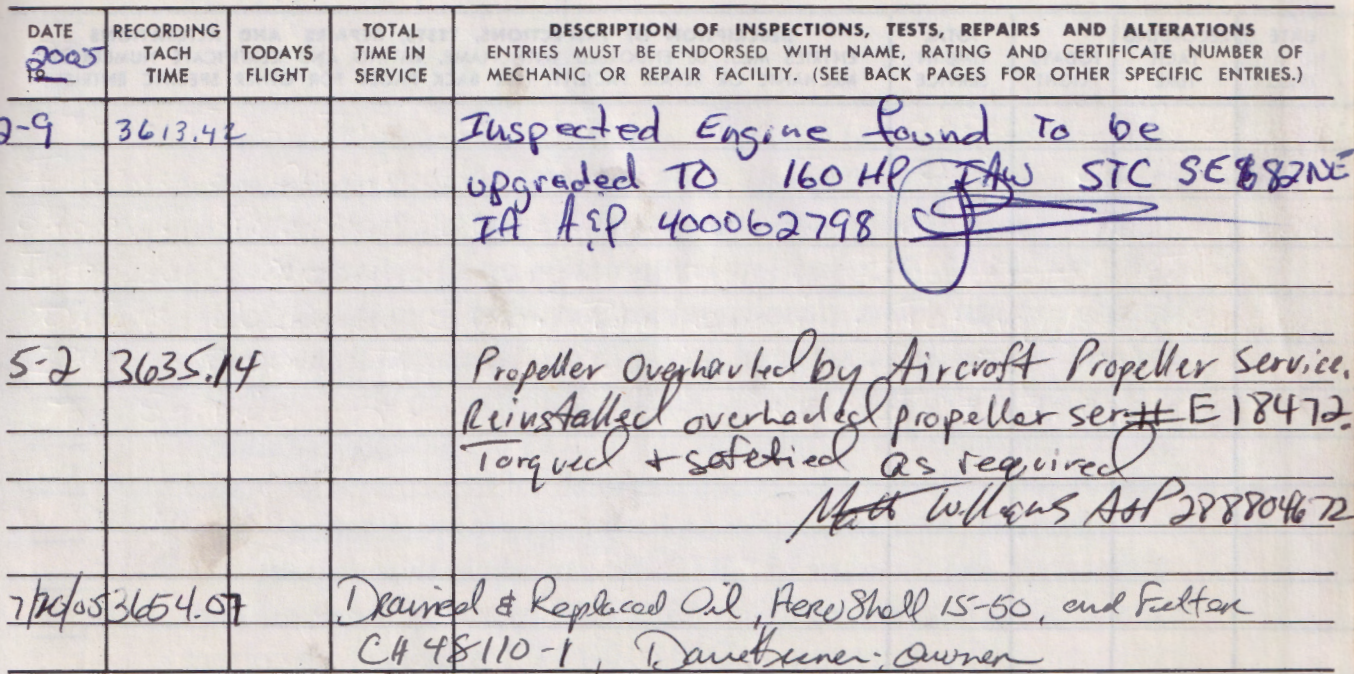 DATE RECORDING TOTAL DESCRIPTION OF INSPECTIONS, TESTS, REPAIRS AND ALTERATIONS
2005 TACH TODAYS TIME IN ENTRIES MUST BE ENDORSED WITH NAME, RATING AND CERTIFICATE NUMBER OF
19 TIME FLIGHT SERVICE MECHANIC OR REPAIR FACILITY. (SEE BACK PAGES FOR OTHER SPECIFIC ENTRIES.)
2-9 3613.42 Inspected Engine found To be
upgraded TO 160 HP IAW STC SE882NE
IA A&P 400062798
5-2 3635.14 Propeller Overhauled by Aircraft Propeller Service.
Reinstalled overhauled propeller ser# E18472.
Torqued + safetied as required
Williams A&P 288804672
7/20/05 3654.07 Drained & Replaced Oil, AeroShell 15-50, and Filter
CH 48110-1, Owner